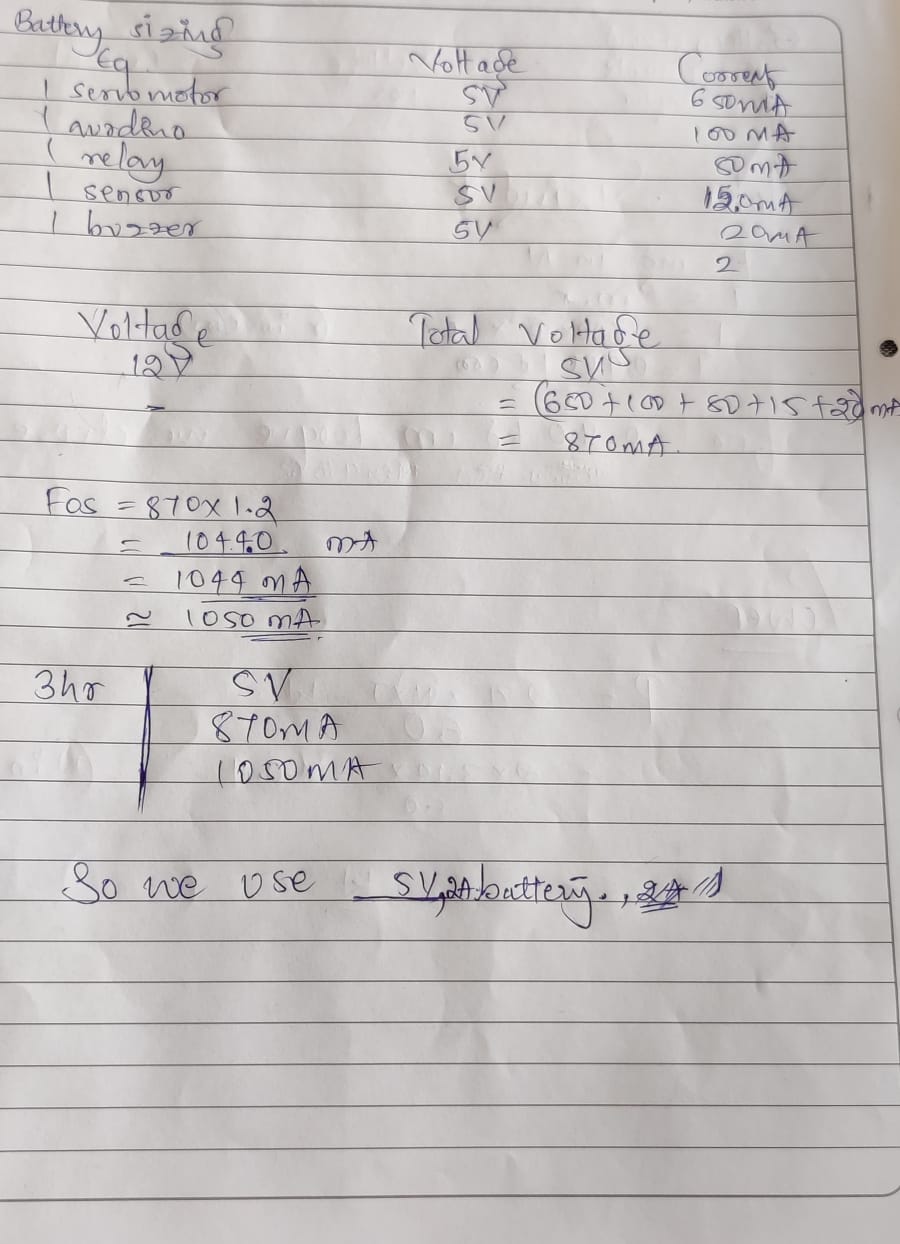 Battery sizing
Eq. Voltage Current
1 servomotor 5V 650mA
1 aurdino 5V 100 MA
1 relay 5V 80mA
1 sensor 5V 15.0mA
1 buzzer 5V 20mA
2
Voltage Total Voltage
12V 5V
- = (650 + 100 + 80 + 15 + 20) mA
= 870mA.
Fos = 870 x 1.2
= 1044.0 mA
= 1044 mA
≈ 1050 mA.
3hr 5V
870mA
1050mA
So we use 5V,2A battery.,